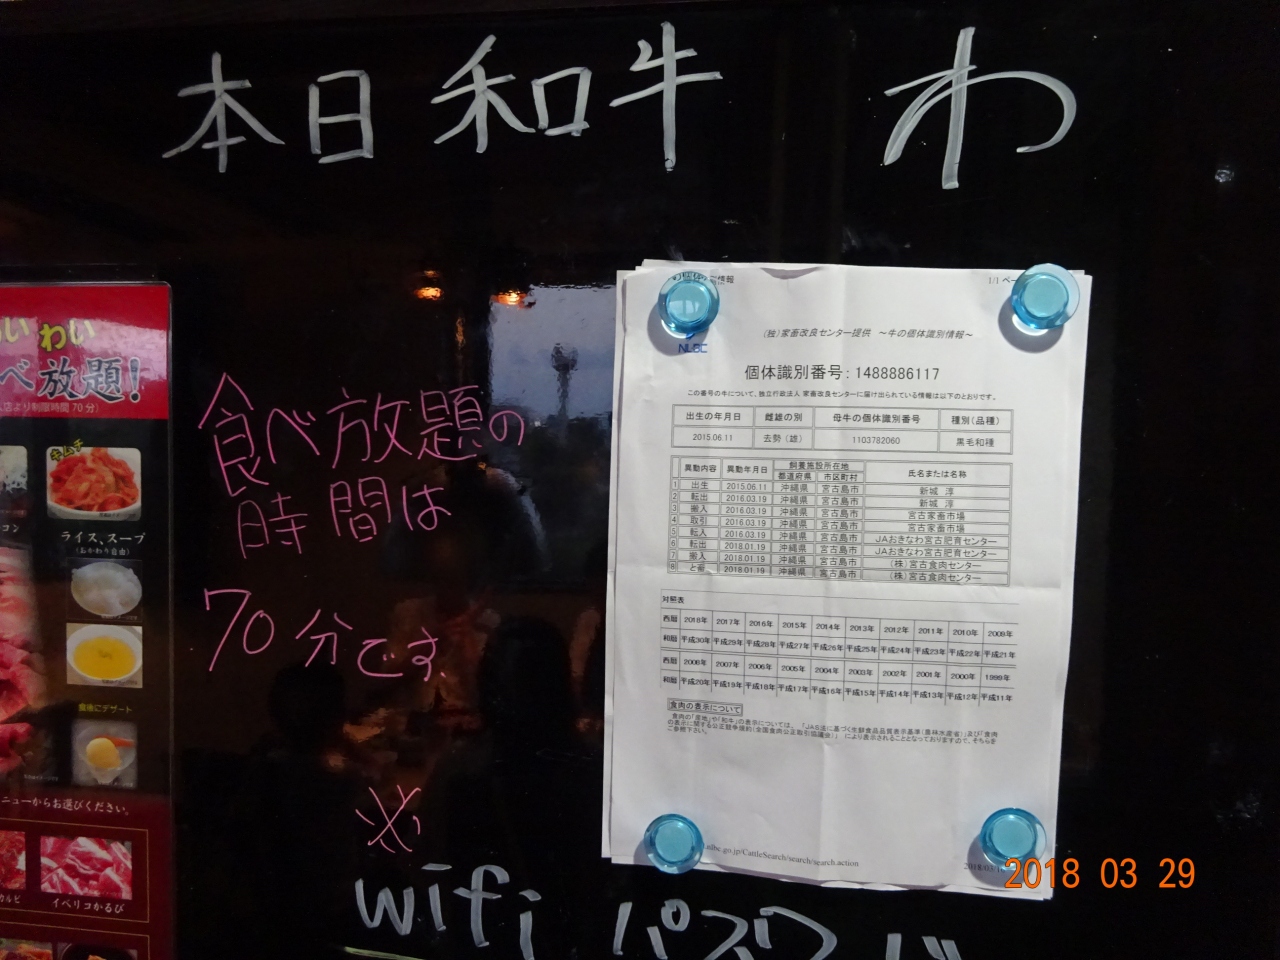 本日和牛 わ
わい
べ放題!
店より制限時間70分)
キムチ
ライス、スープ
(おかわり自由)
食後にデザート
ニューからお選びください。
カルビ
イベリコかるび
食べ放題の
時間は
70分です
※
wifi パスワード
情報
1/1 ペー
NLBC
(独)家畜改良センター提供 ~牛の個体識別情報~
個体識別番号: 1488886117
この番号の牛について、独立行政法人 家畜改良センターに届け出られている情報は以下のとおりです。
出生の年月日 雌雄の別 母牛の個体識別番号 種別(品種)
2015.06.11 去勢(雄) 1103782060 黒毛和種
異動内容 異動年月日 飼養施設所在地 氏名または名称
都道府県 市区町村
1 出生 2015.06.11 沖縄県 宮古島市 新城 淳
2 転出 2016.03.19 沖縄県 宮古島市 新城 淳
3 搬入 2016.03.19 沖縄県 宮古島市 宮古家畜市場
4 取引 2016.03.19 沖縄県 宮古島市 宮古家畜市場
5 転入 2016.03.19 沖縄県 宮古島市 JAおきなわ宮古肥育センター
6 転出 2018.01.19 沖縄県 宮古島市 JAおきなわ宮古肥育センター
7 搬入 2018.01.19 沖縄県 宮古島市 (株)宮古食肉センター
8 と畜 2018.01.19 沖縄県 宮古島市 (株)宮古食肉センター
対照表
西暦 2018年 2017年 2016年 2015年 2014年 2013年 2012年 2011年 2010年 2009年
和暦 平成30年 平成29年 平成28年 平成27年 平成26年 平成25年 平成24年 平成23年 平成22年 平成21年
西暦 2008年 2007年 2006年 2005年 2004年 2003年 2002年 2001年 2000年 1999年
和暦 平成20年 平成19年 平成18年 平成17年 平成16年 平成15年 平成14年 平成13年 平成12年 平成11年
食肉の表示について
食肉の「産地」や「和牛」の表示については、「JAS法に基づく生鮮食品品質表示基準(農林水産省)」及び「食肉
の表示に関する公正競争規約(全国食肉公正取引協議会)」により表示されることとなっておりますので、そちらを
ご参照下さい。
nlbc.go.jp/CattleSearch/search/search.action
2018/03
2018 03 29